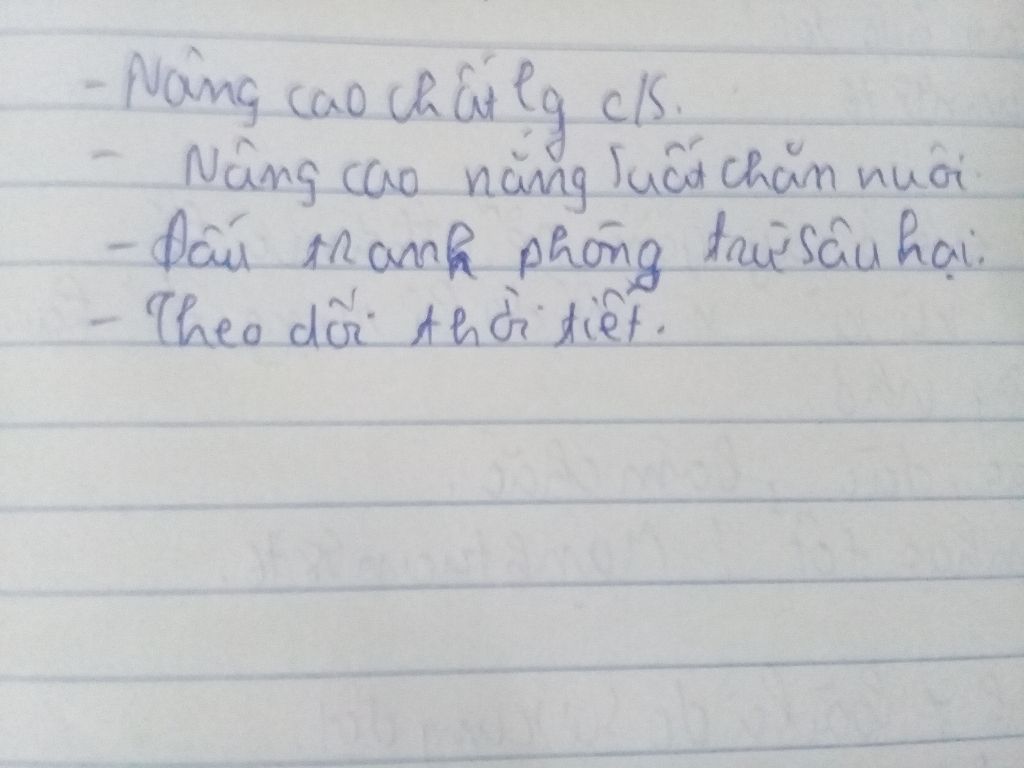 - Nâng cao chất lg c/s.
- Nâng cao năng suất chăn nuôi
- Đấu tranh phòng trừ sâu hại.
- Theo dõi thời tiết.